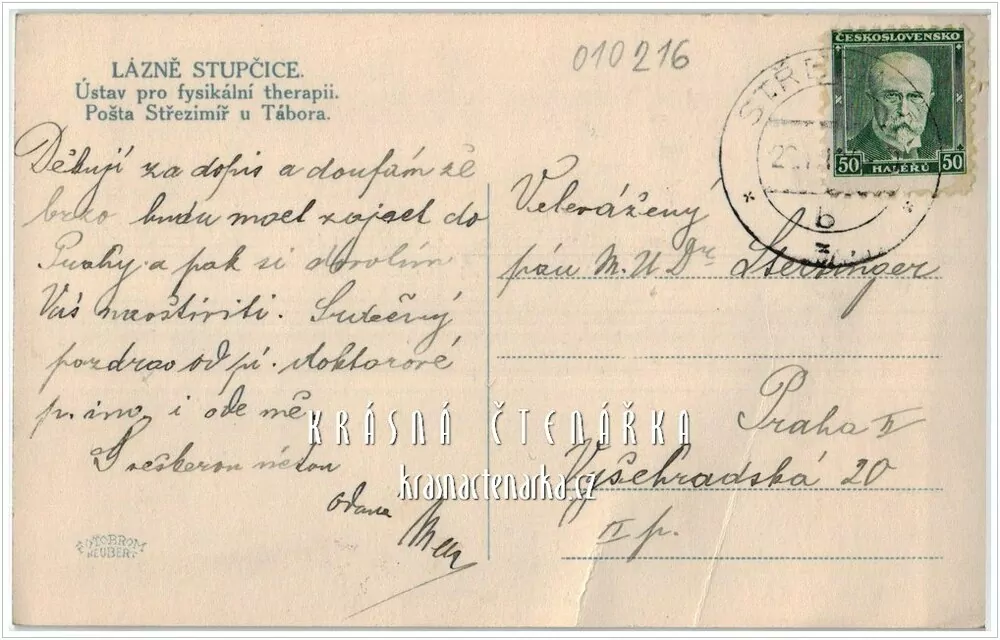 LÁZNĚ STUPČICE.
Ústav pro fysikální therapii.
Pošta Střezimíř u Tábora.
010216
ČESKOSLOVENSKO
50 HALÉŘŮ 50
STŘE
b
Děkuji za dopis a doufám že
brzo budu moct zajet do
Prahy a pak si dovolím
Vás navštíviti. Srdečný
pozdrav od pí. doktorové
p. ing. i ode mě
S veškerou úctou
oddaná
Velevážený
pán M.U.Dr Sterzinger
Praha II
Vyšehradská 20
II p.
KRÁSNÁ ČTENÁŘKA
krasnactenarka.cz
FOTOBROM
NEUBERT